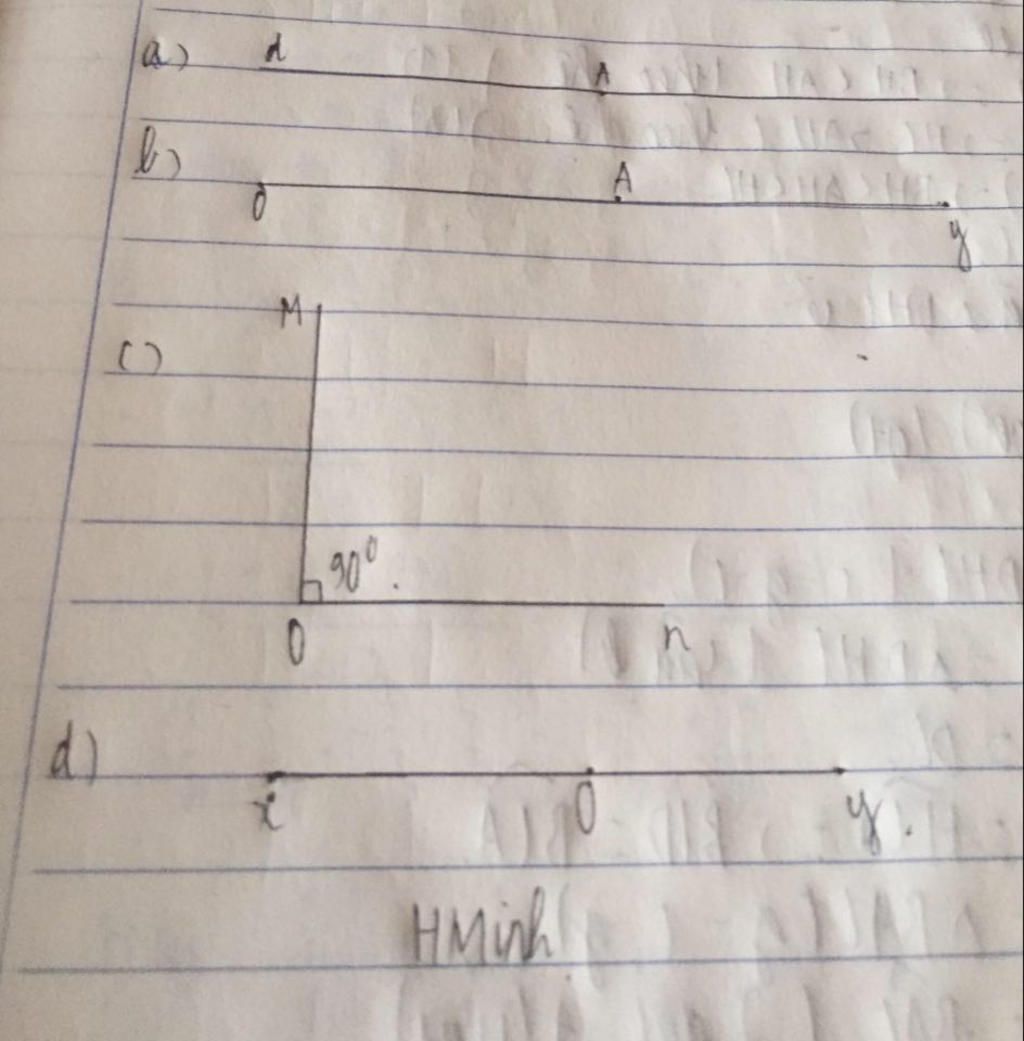 a) d A
b) O A y
M
c)
90⁰.
O n
d)
x O y.
HMinh